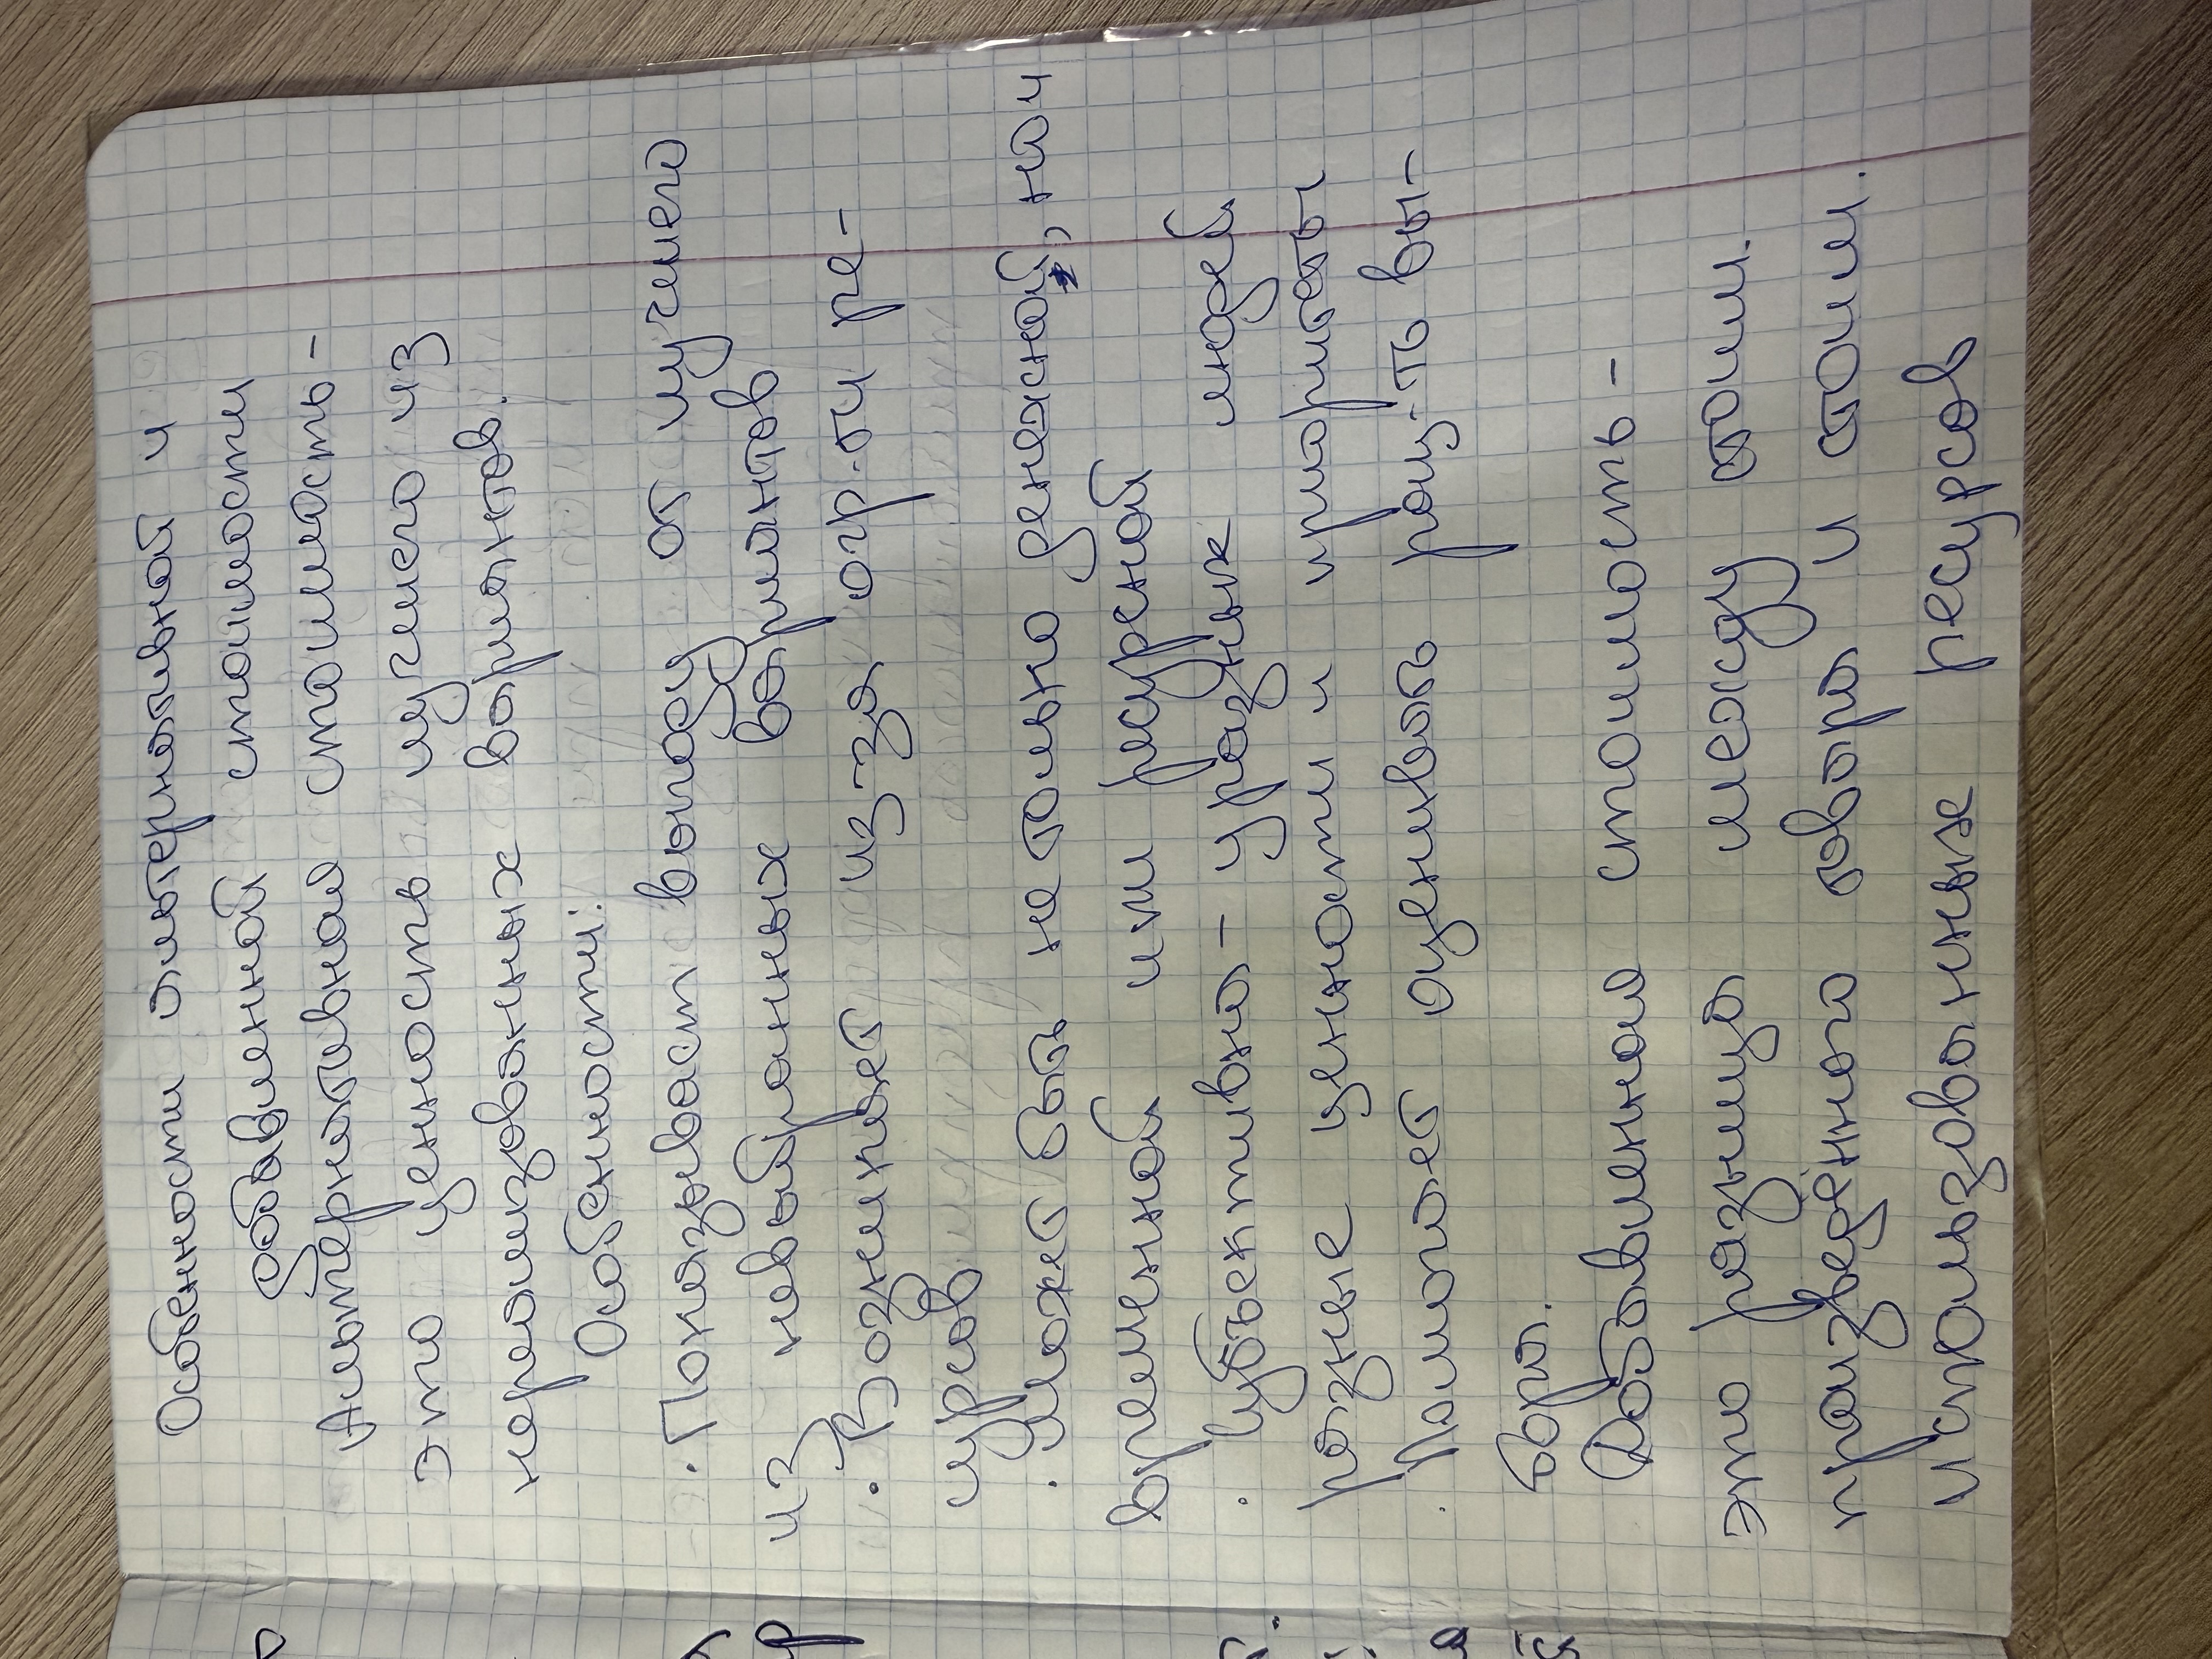 Особенности альтернативной и
добавленной стоимости
Альтернативная стоимость -
это ценность лучшего из
нереализованных вариантов.
Особенности:
· Показывает выгоду от лучшего
из невыбранных вариантов
· Возникает из-за огр-ти ре-
сурсов
· может быть не только денежной, но и
временной или ресурсной
· субъективна - у разных людей
разные ценности и приоритеты
· Помогает оценивать рац-ть вы-
бора.
Добавленная стоимость -
это разница между стоим.
произведённого товара и стоим.
использованных ресурсов